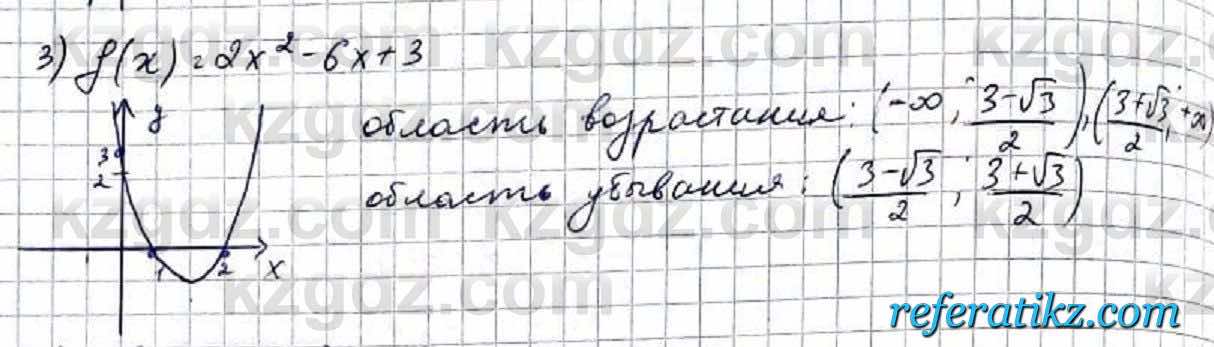 3) f(x) = 2x² - 6x + 3
y
3
2
1 2 x
область возрастания: (-∞; (3-√3)/2), ((3+√3)/2; +∞)
область убывания: ((3-√3)/2; (3+√3)/2)
kzgdz.com kzgdz.com kzgdz.com
kzgdz.com kzgdz.com kzgdz.com
kzgdz.com
referatikz.com